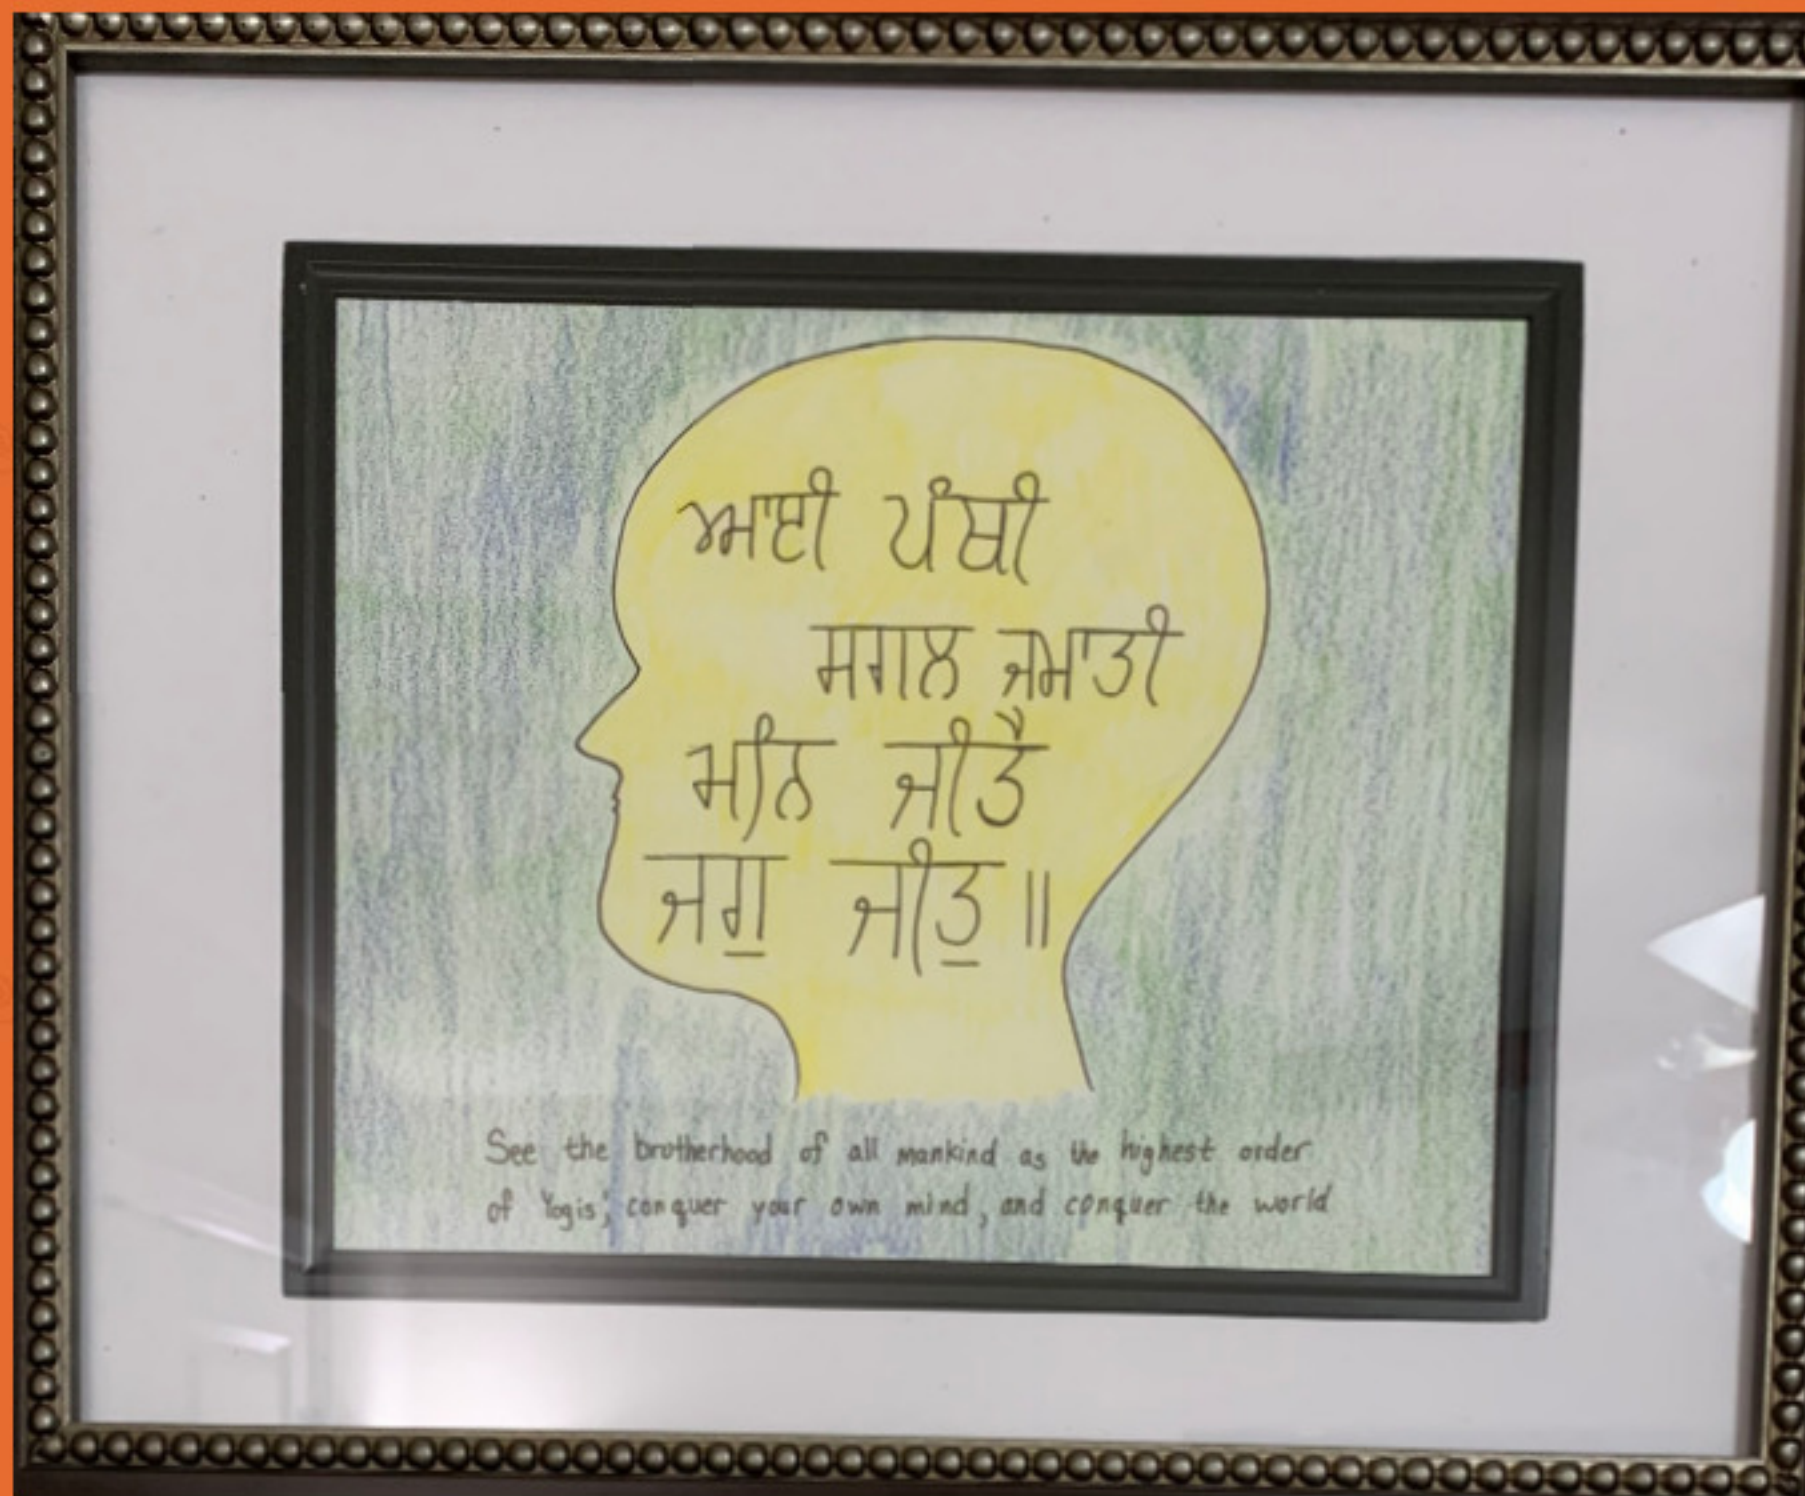 ਆਈ ਪੰਥੀ
ਸਗਲ ਜਮਾਤੀ
ਮਨਿ ਜੀਤੈ
ਜਗੁ ਜੀਤੁ ॥
See the brotherhood of all mankind as the highest order
of Yogis; conquer your own mind, and conquer the world